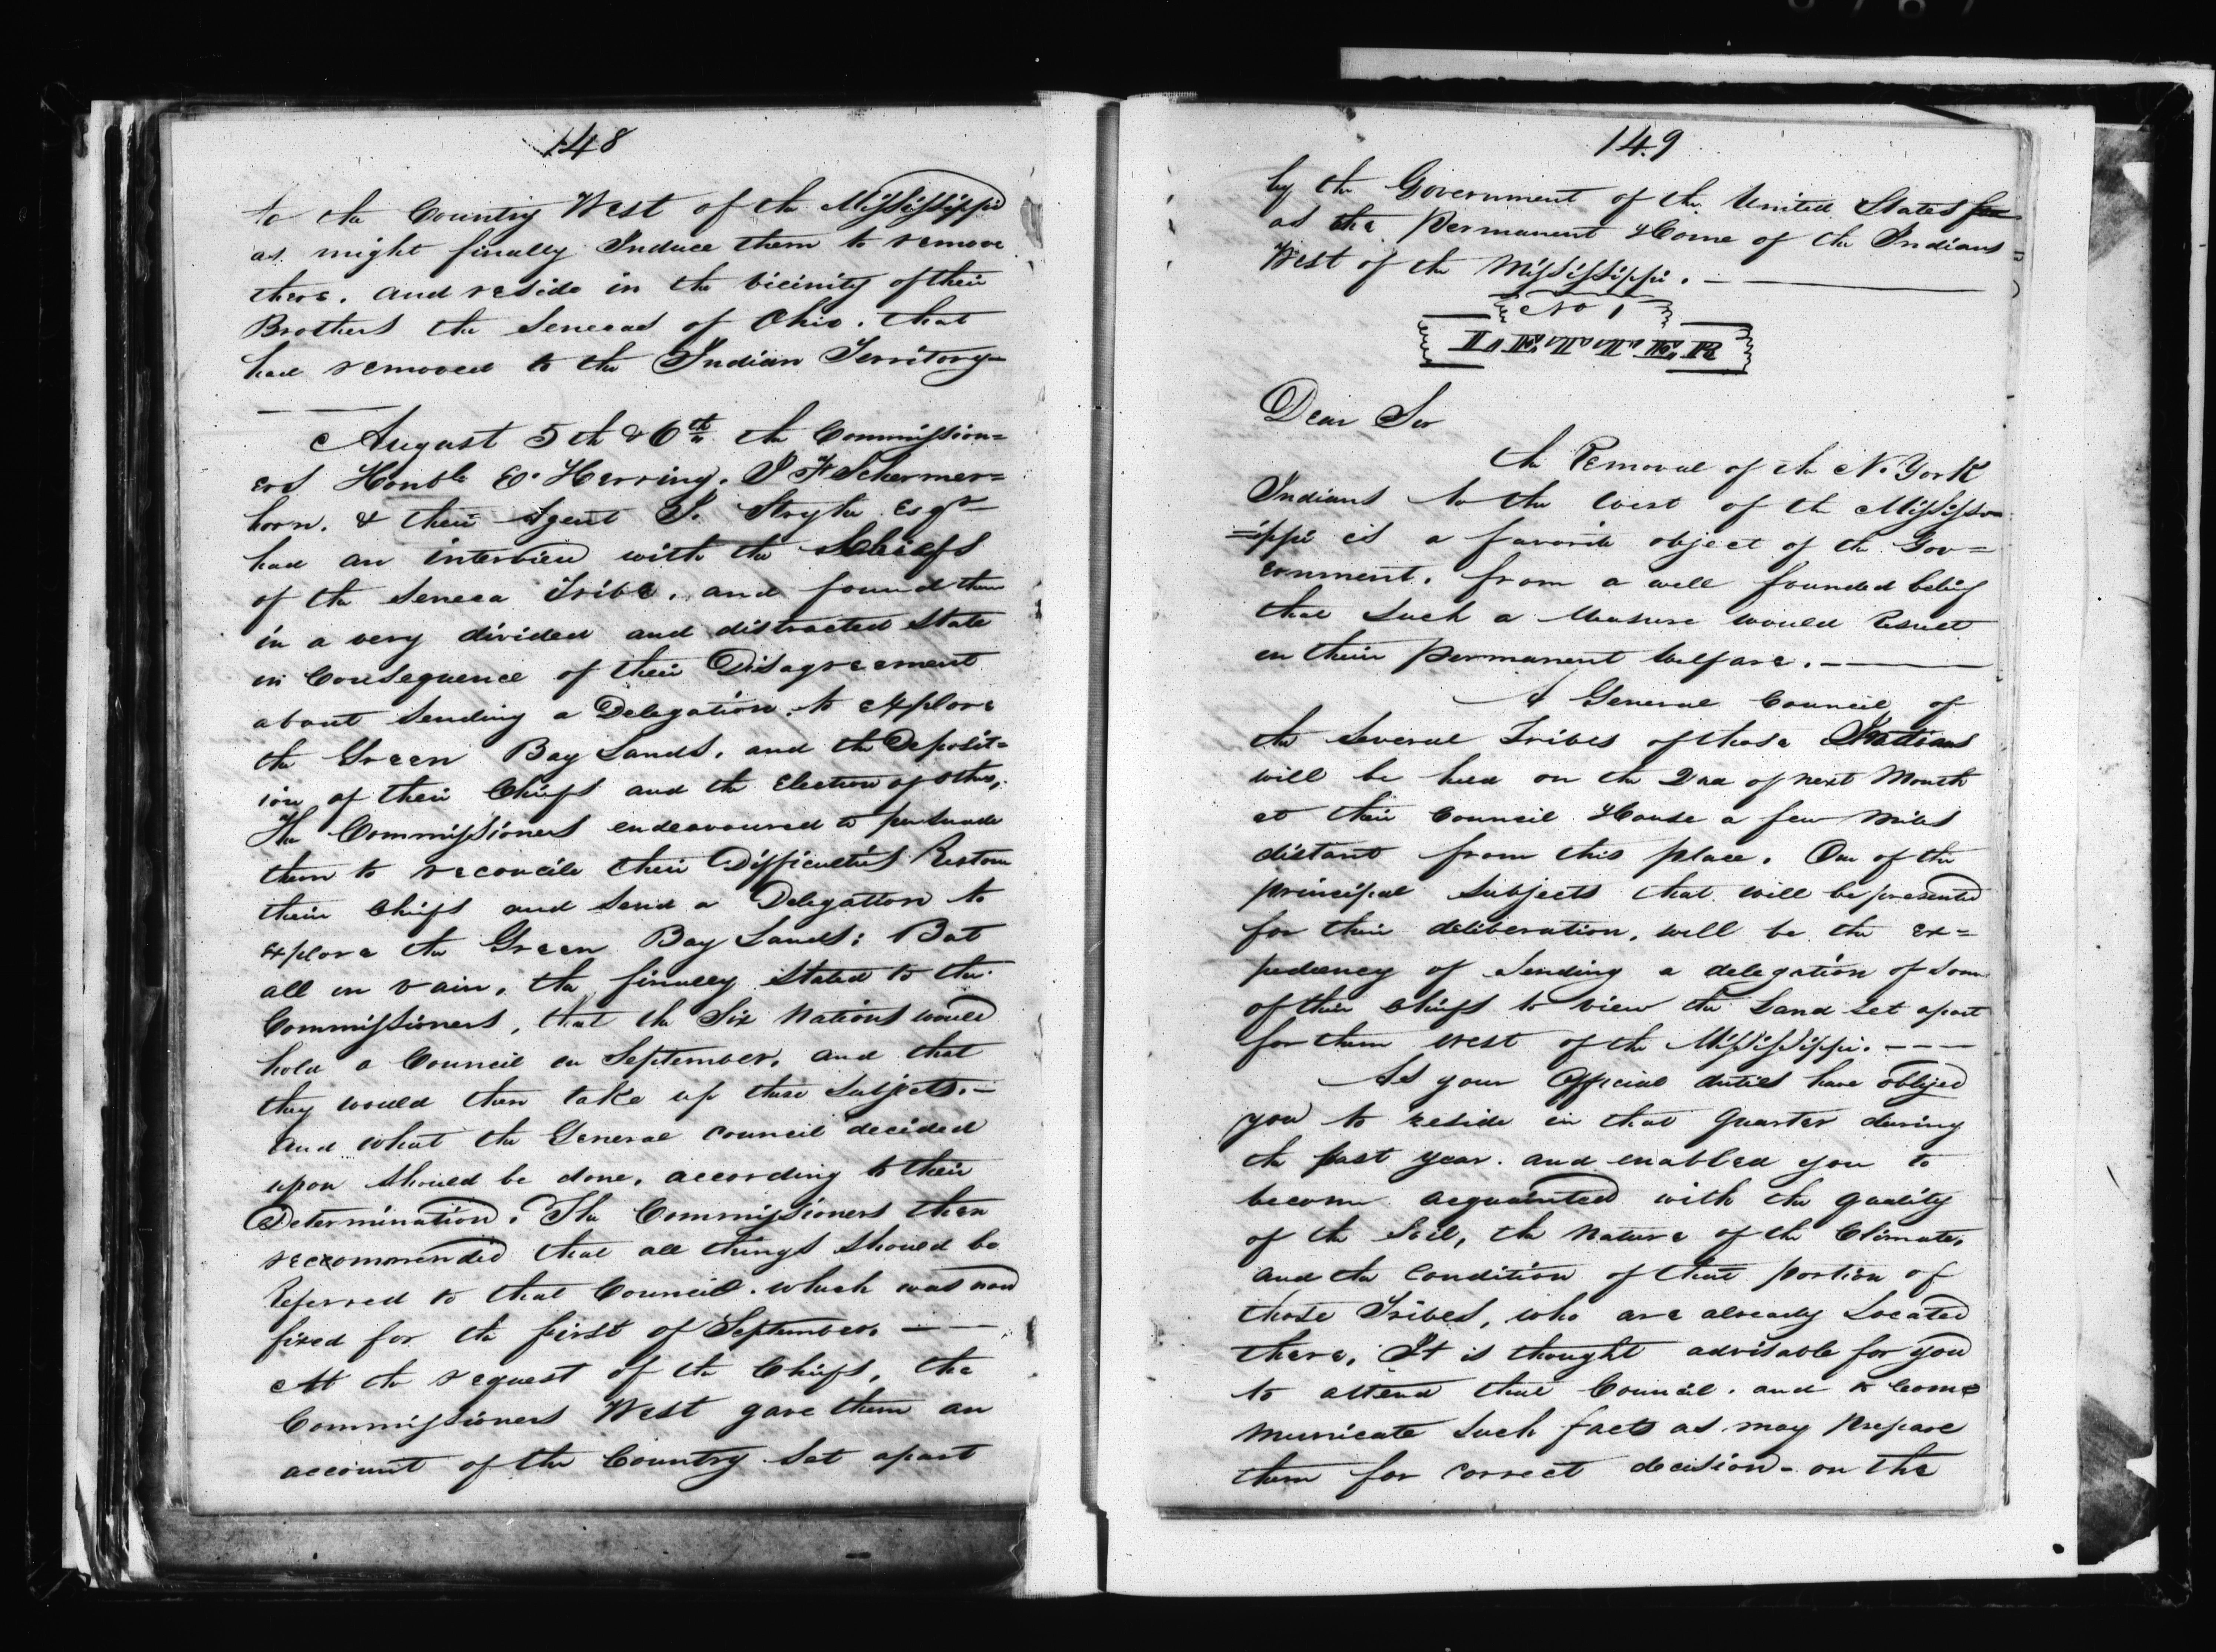 148
to the Country West of the Mississippi
as might finally Induce them to remove
there. and reside in the vicinity of their
Brothers the Senecas of Ohio. that
had removed to the Indian Territory
August 5th & 6th the Commission=
ers Honble E. Herring. J F Schermer=
horn. & their Agent J. Stryker Esqr
had an interview with the Chiefs
of the Seneca Tribe. and found them
in a very divided and distracted State
in Consequence of their Disagreement
about Sending a Delegation to explore
the Green Bay Lands. and the Deposit=
ion of their Chiefs and the Election of others.
The Commissioners endeavoured to persuade
them to reconcile their Difficulties Restore
their Chiefs and Send a Delegation to
explore the Green Bay Lands; But
all in vain. the finally Stated to the
Commissioners, that the Six Nations would
hold a Council in September. and that
they would then take up these Subjects.—
and what the General Council decided
upon Should be done. according to their
Determination. The Commissioners then
reccommended that all things Should be
Referred to that Council. which was now
fixed for the first of September. — —
At the request of the Chiefs, the
Commissioners West gave them an
account of the Country Set apart
149
by the Government of the United States for
as the Permanent Home of the Indians=
West of the Mississippi. —
No 1
Dear Sir
the Removal of the N. York
Indians to the West of the Mississ=
=ippi is a favorite object of the Gov=
ernment. from a well founded belief
that Such a Measure would Result
in their Permanent Welfare. —
A General Council of
the Several Tribes of those Indians
will be held on the 2nd of next Month
at their Council House a few Miles
distant from this place. One of the
principal Subjects that will be presented
for their deliberation, will be the ex=
pediency of Sending a delegation of Some
of their Chiefs to view the Land Set apart
for them West of the Mississippi. - - -
As your Official duties have obliged
you to reside in that Quarter during
the past year. and enabled you to
become acquainted with the quality
of the Soil, the Nature of the Climate,
and the Condition of that portion of
those Tribes, who are already Located
there. It is thought advisable for you
to attend that Council. and to Com=
municate Such facts as may Prepare
them for Correct decision - on the